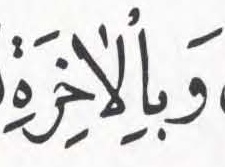 وَبِاْلاٰخِرَةِ